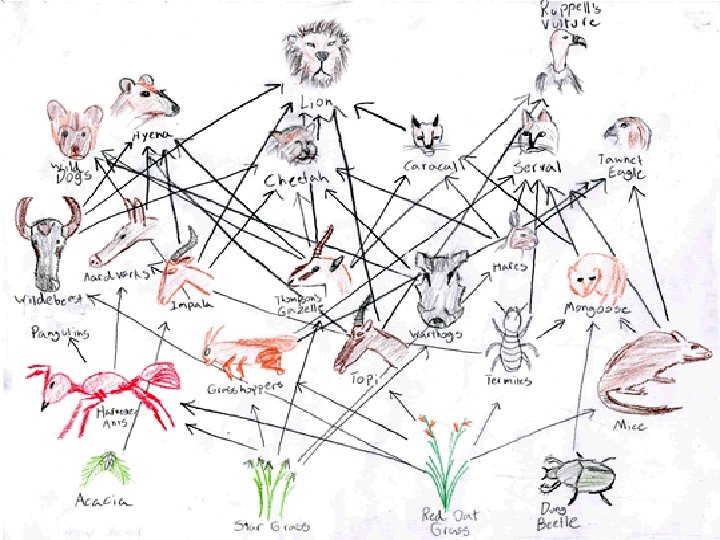 Ruppell's
Vulture
Lion
Hyena
Wild
Dogs
Cheetah
Caracal
Serval
Tawnet
Eagle
Wildebeest
Aardvarks
Impala
Thompson's
Gazelle
Warthogs
Hares
Mongoose
Pangulins
Grasshoppers
Topi
Termites
Mice
Harvester
Ants
Acacia
Star Grass
Red Oat
Grass
Dung
Beetle